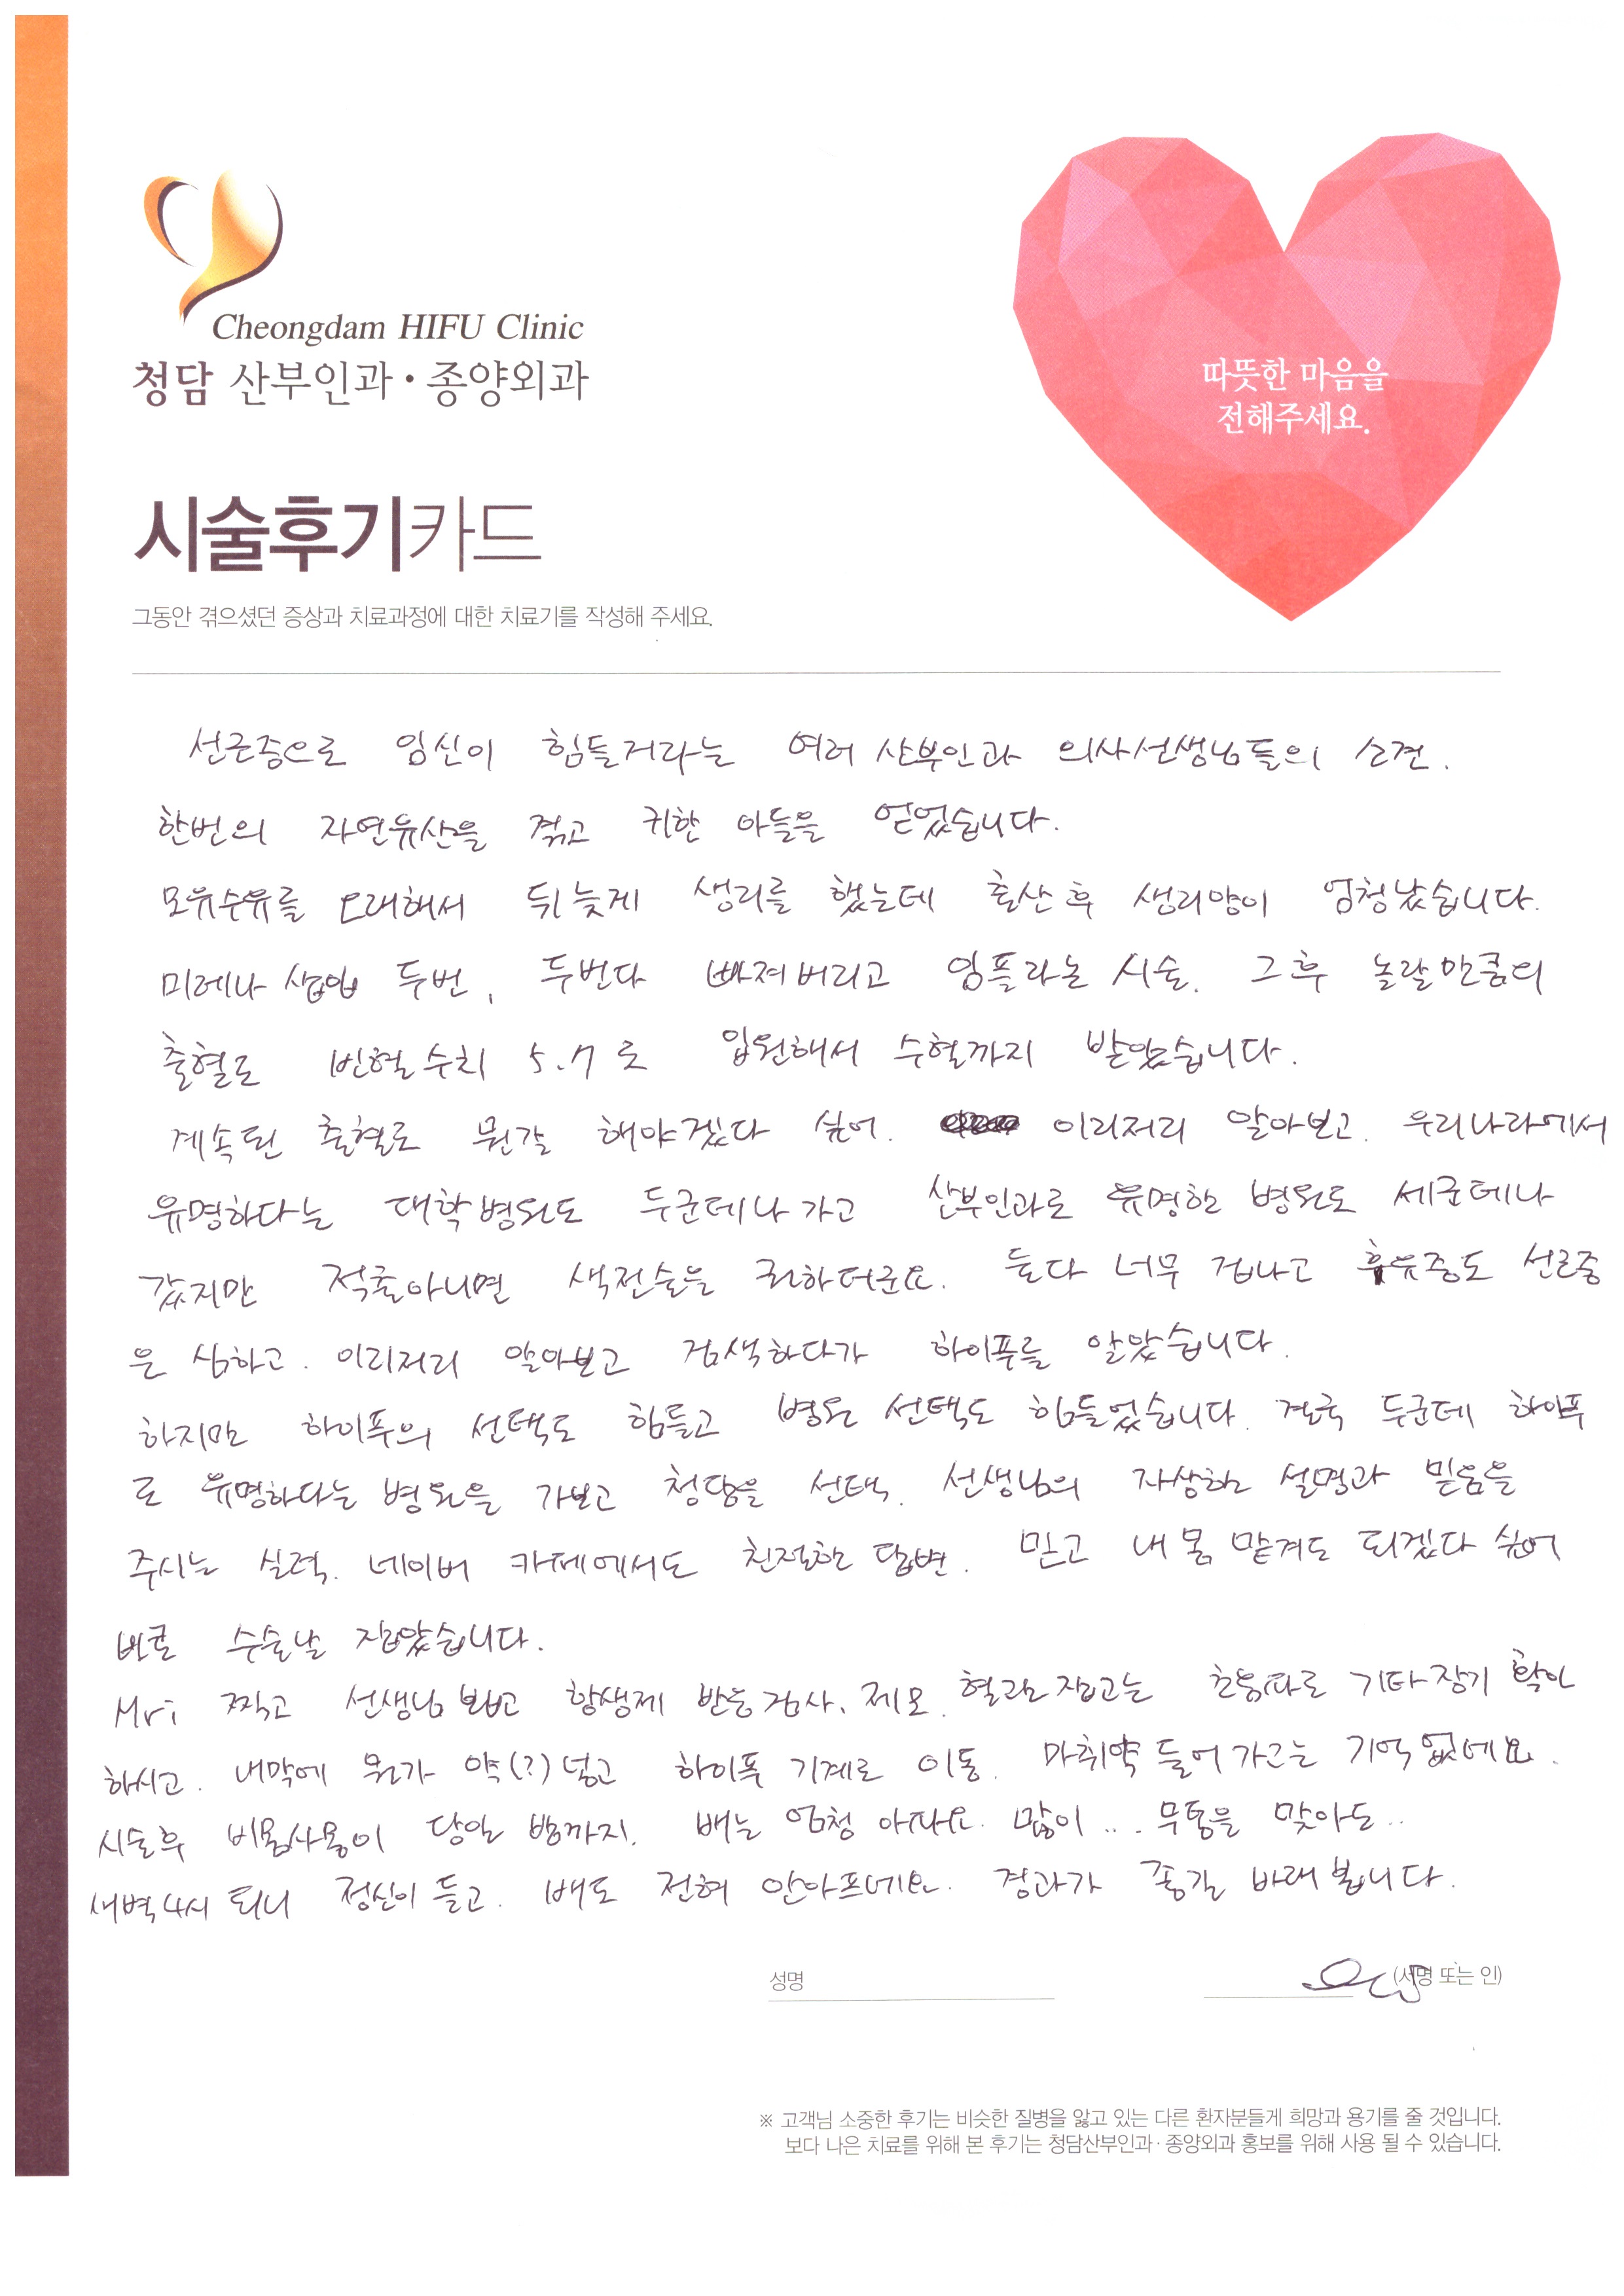 Cheongdam HIFU Clinic
청담 산부인과·종양외과
따뜻한 마음을
전해주세요.
시술후기카드
그동안 겪으셨던 증상과 치료과정에 대한 치료기를 작성해 주세요.
선근증으로 임신이 힘들거라는 여러 산부인과 의사선생님들의 소견.
한번의 자연유산을 겪고 귀한 아들을 얻었습니다.
모유수유를 오래해서 뒤늦게 생리를 했는데 출산 후 생리양이 엄청났습니다.
미레나 삽입 두번, 두번다 빠져버리고 임플라논 시술. 그 후 놀랄만큼의
출혈로 빈혈수치 5.7로 입원해서 수혈까지 받았습니다.
계속된 출혈로 뭔갈 해야겠다 싶어. 이리저리 알아보고. 우리나라에서
유명하다는 대학병원도 두군데나 가고 산부인과로 유명한 병원도 세군데나
갔지만 적출아니면 색전술을 권하더군요. 둘다 너무 겁나고 후유증도 선근증
은 심하고. 이리저리 알아보고 검색하다가 하이푸를 알았습니다.
하지만 하이푸의 선택도 힘들고 병원 선택도 힘들었습니다. 결국 두군데 하이푸
로 유명하다는 병원을 가보고 청담을 선택. 선생님의 자상한 설명과 믿음을
주시는 실력. 네이버 카페에서도 친절한 답변. 믿고 내 몸 맡겨도 되겠다 싶어
바로 수술날 잡았습니다.
Mri 찍고 선생님 뵙고 항생제 반응검사, 제모. 혈관 잡고는 초음파로 기타장기 확인
하시고. 내막에 뭔가 약(?) 넣고 하이푸 기계로 이동. 마취약 들어가고는 기억 없네요.
시술후 비몽사몽이 당일 밤까지. 배는 엄청 아파요. 많이... 무통을 맞아도..
새벽 4시 되니 정신이 들고. 배도 전혀 안아프네요. 경과가 좋길 바래 봅니다.
성명
(서명 또는 인)
※ 고객님 소중한 후기는 비슷한 질병을 앓고 있는 다른 환자분들게 희망과 용기를 줄 것입니다.
보다 나은 치료를 위해 본 후기는 청담산부인과·종양외과 홍보를 위해 사용 될 수 있습니다.